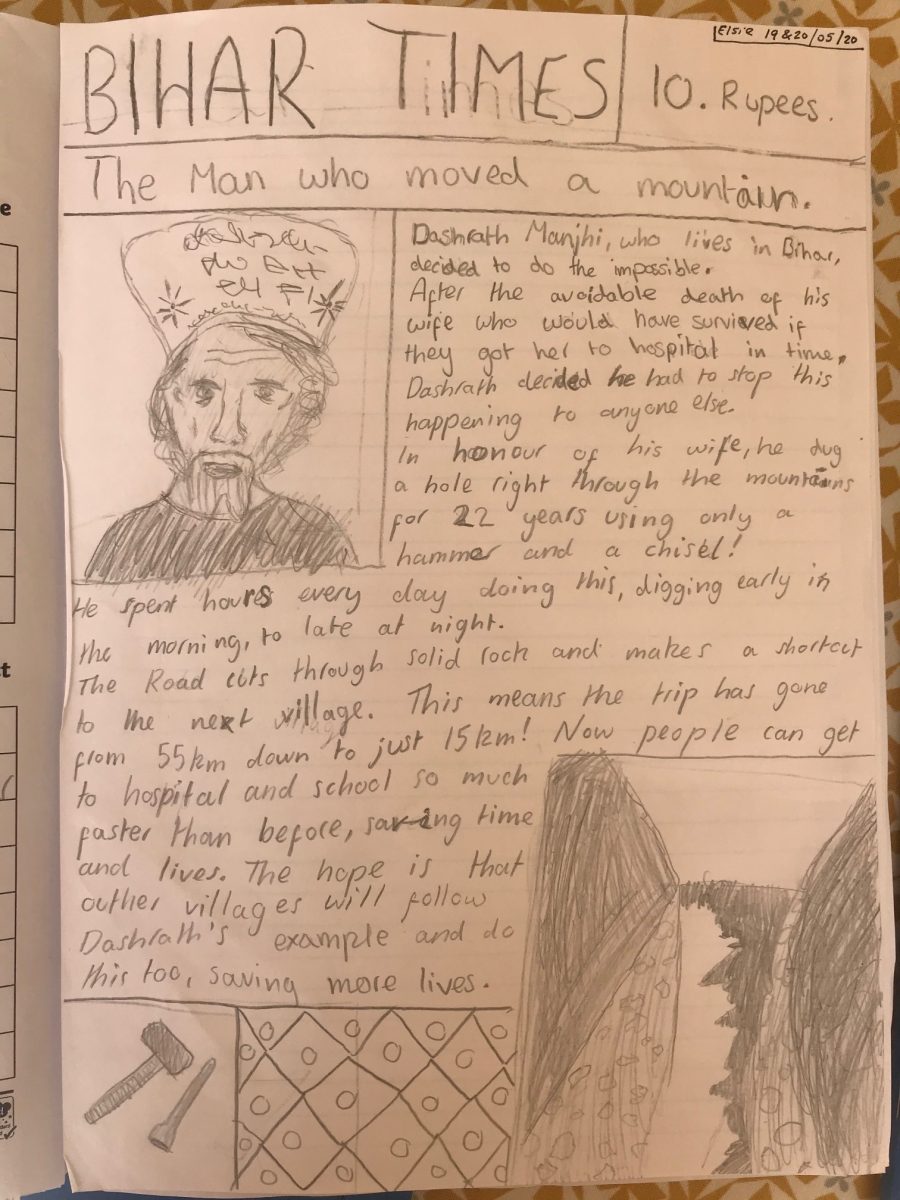 Elsie 19 & 20/05/20
BIHAR TIMES
10. Rupees.
The Man who moved a mountain.
Dashrath Manjhi, who lives in Bihar,
decided to do the impossible.
After the avoidable death of his
wife who would have survived if
they got her to hospital in time,
Dashrath decided he had to stop this
happening to anyone else.
In honour of his wife, he dug
a hole right through the mountains
for 22 years using only a
hammer and a chisel!
He spent hours every day doing this, digging early in
the morning, to late at night.
The Road cuts through solid rock and makes a shortcut
to the next village. This means the trip has gone
from 55km down to just 15km! Now people can get
to hospital and school so much
faster than before, saving time
and lives. The hope is that
outher villages will follow
Dashrath's example and do
this too, saving more lives.